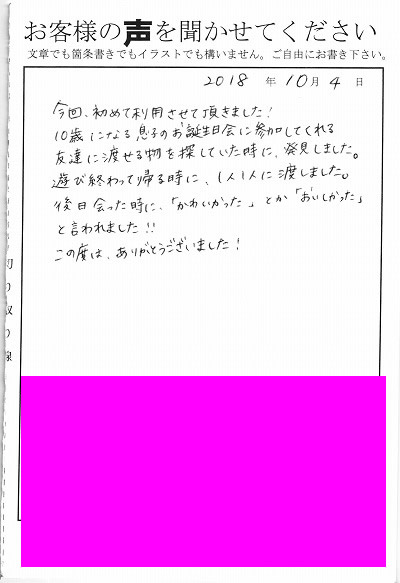 お客様の声を聞かせてください
文章でも箇条書きでもイラストでも構いません。ご自由にお書き下さい。
2018年10月4日
今回、初めて利用させて頂きました!
10歳になる息子のお誕生日会に参加してくれる
友達に渡せる物を探していた時に、発見しました。
遊び終わって帰る時に、1人1人に渡しました。
後日会った時に、「かわいかった」とか「おいしかった」
と言われました!!
この度は、ありがとうございました!
切り取り線